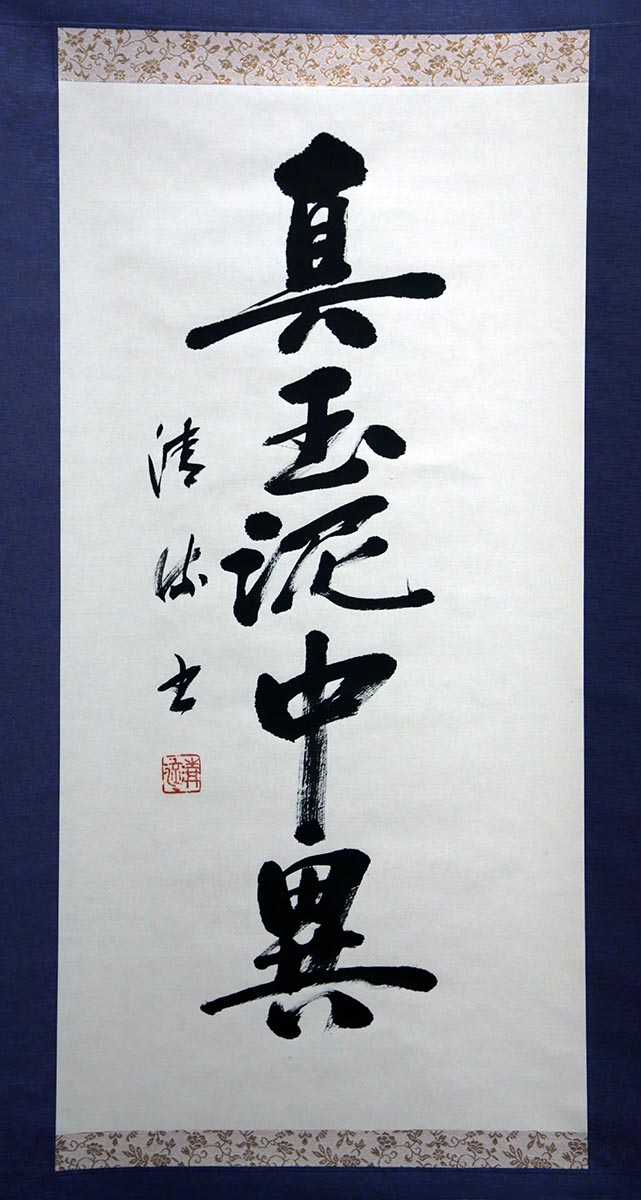 真玉泥中異
清流書